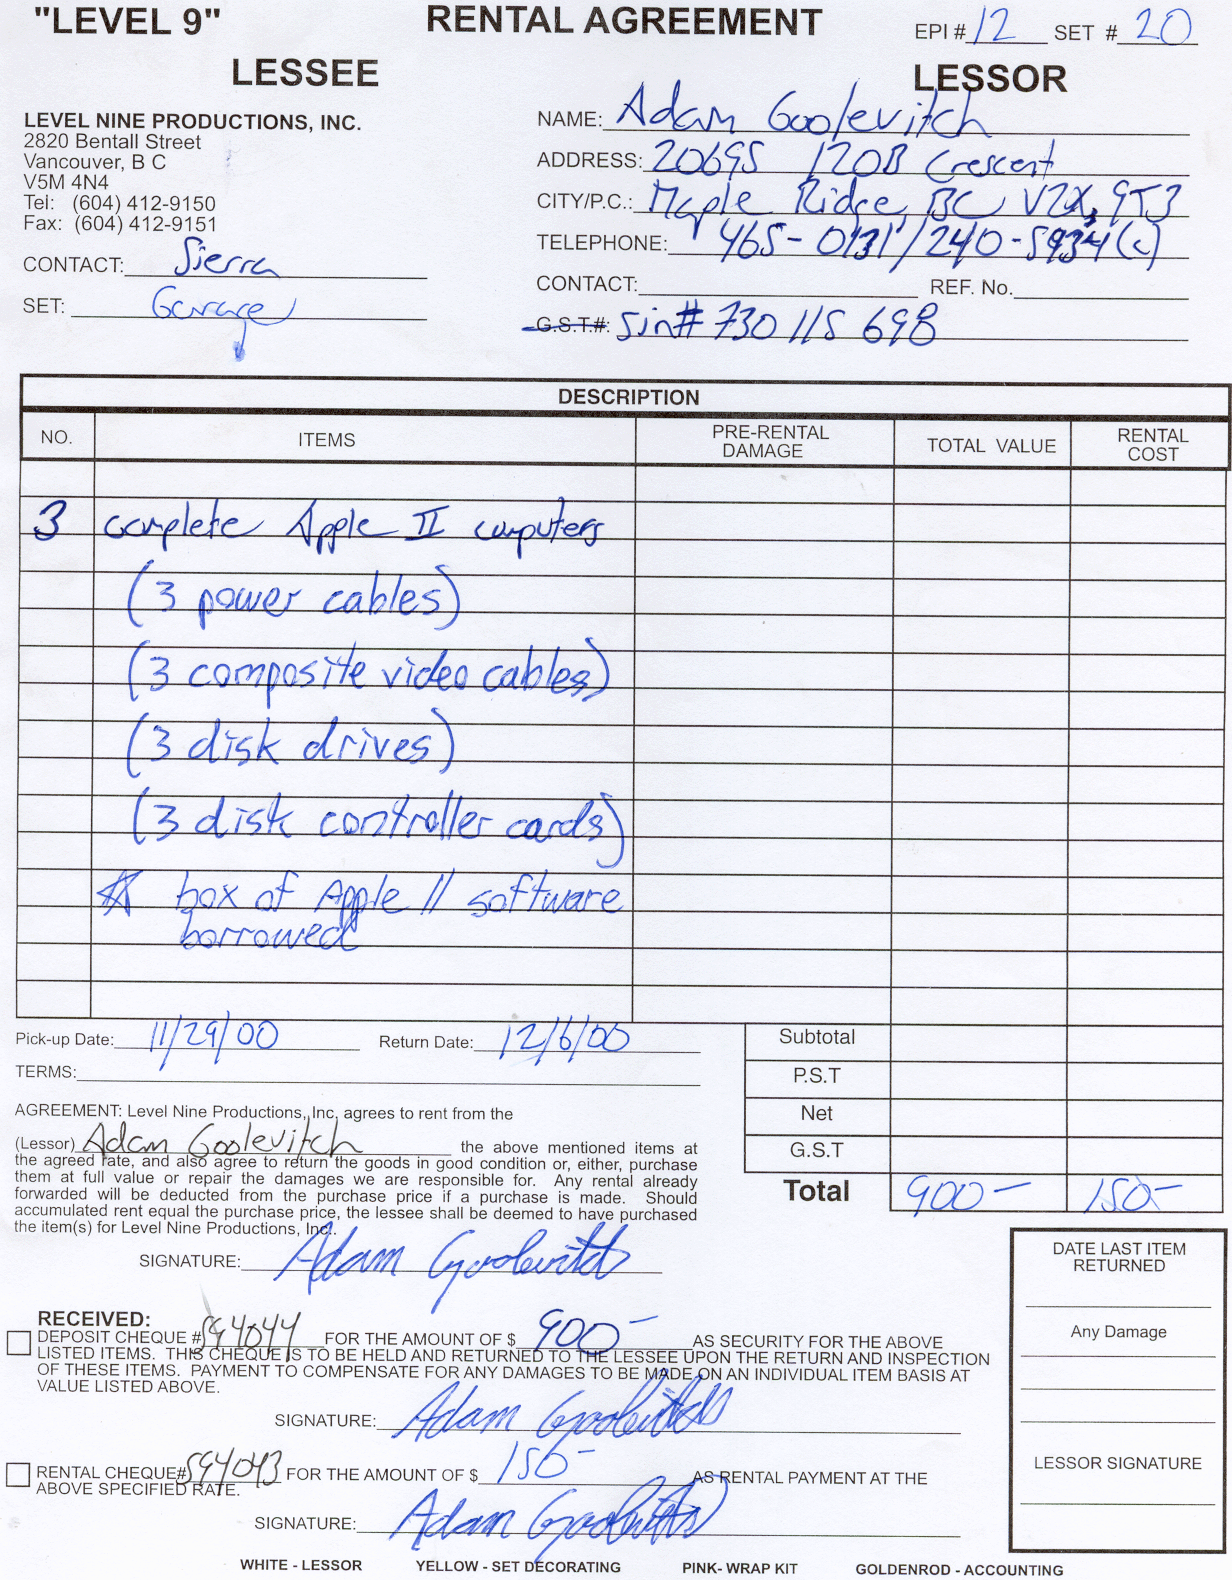 "LEVEL 9" RENTAL AGREEMENT EPI # 12 SET # 20
LESSEE LESSOR
LEVEL NINE PRODUCTIONS, INC.
2820 Bentall Street
Vancouver, B C
V5M 4N4
Tel: (604) 412-9150
Fax: (604) 412-9151
CONTACT: Sierra
SET: Garage
NAME: Adam Goolevitch
ADDRESS: 20695 120B Crescent
CITY/P.C.: Maple Ridge, BC V2X 9T3
TELEPHONE: 465-0131 / 240-5934 (c)
CONTACT: REF. No.
G.S.T.#: Sin# 730 115 698
DESCRIPTION
NO. ITEMS PRE-RENTAL DAMAGE TOTAL VALUE RENTAL COST
3 complete Apple II computers
(3 power cables)
(3 composite video cables)
(3 disk drives)
(3 disk controller cards)
☆ box of Apple // software
borrowed
Pick-up Date: 11/29/00 Return Date: 12/6/00
TERMS:
Subtotal
P.S.T
Net
G.S.T
Total 900- 150-
AGREEMENT: Level Nine Productions, Inc, agrees to rent from the
(Lessor) Adam Goolevitch the above mentioned items at
the agreed rate, and also agree to return the goods in good condition or, either, purchase
them at full value or repair the damages we are responsible for. Any rental already
forwarded will be deducted from the purchase price if a purchase is made. Should
accumulated rent equal the purchase price, the lessee shall be deemed to have purchased
the item(s) for Level Nine Productions, Inc..
SIGNATURE: Adam Goolevitch
RECEIVED:
DEPOSIT CHEQUE # 594044 FOR THE AMOUNT OF $ 900- AS SECURITY FOR THE ABOVE
LISTED ITEMS. THIS CHEQUE IS TO BE HELD AND RETURNED TO THE LESSEE UPON THE RETURN AND INSPECTION
OF THESE ITEMS. PAYMENT TO COMPENSATE FOR ANY DAMAGES TO BE MADE ON AN INDIVIDUAL ITEM BASIS AT
VALUE LISTED ABOVE.
SIGNATURE: Adam Goolevitch
RENTAL CHEQUE# 594043 FOR THE AMOUNT OF $ 150- AS RENTAL PAYMENT AT THE
ABOVE SPECIFIED RATE.
SIGNATURE: Adam Goolevitch
DATE LAST ITEM
RETURNED
Any Damage
LESSOR SIGNATURE
WHITE - LESSOR YELLOW - SET DECORATING PINK- WRAP KIT GOLDENROD - ACCOUNTING